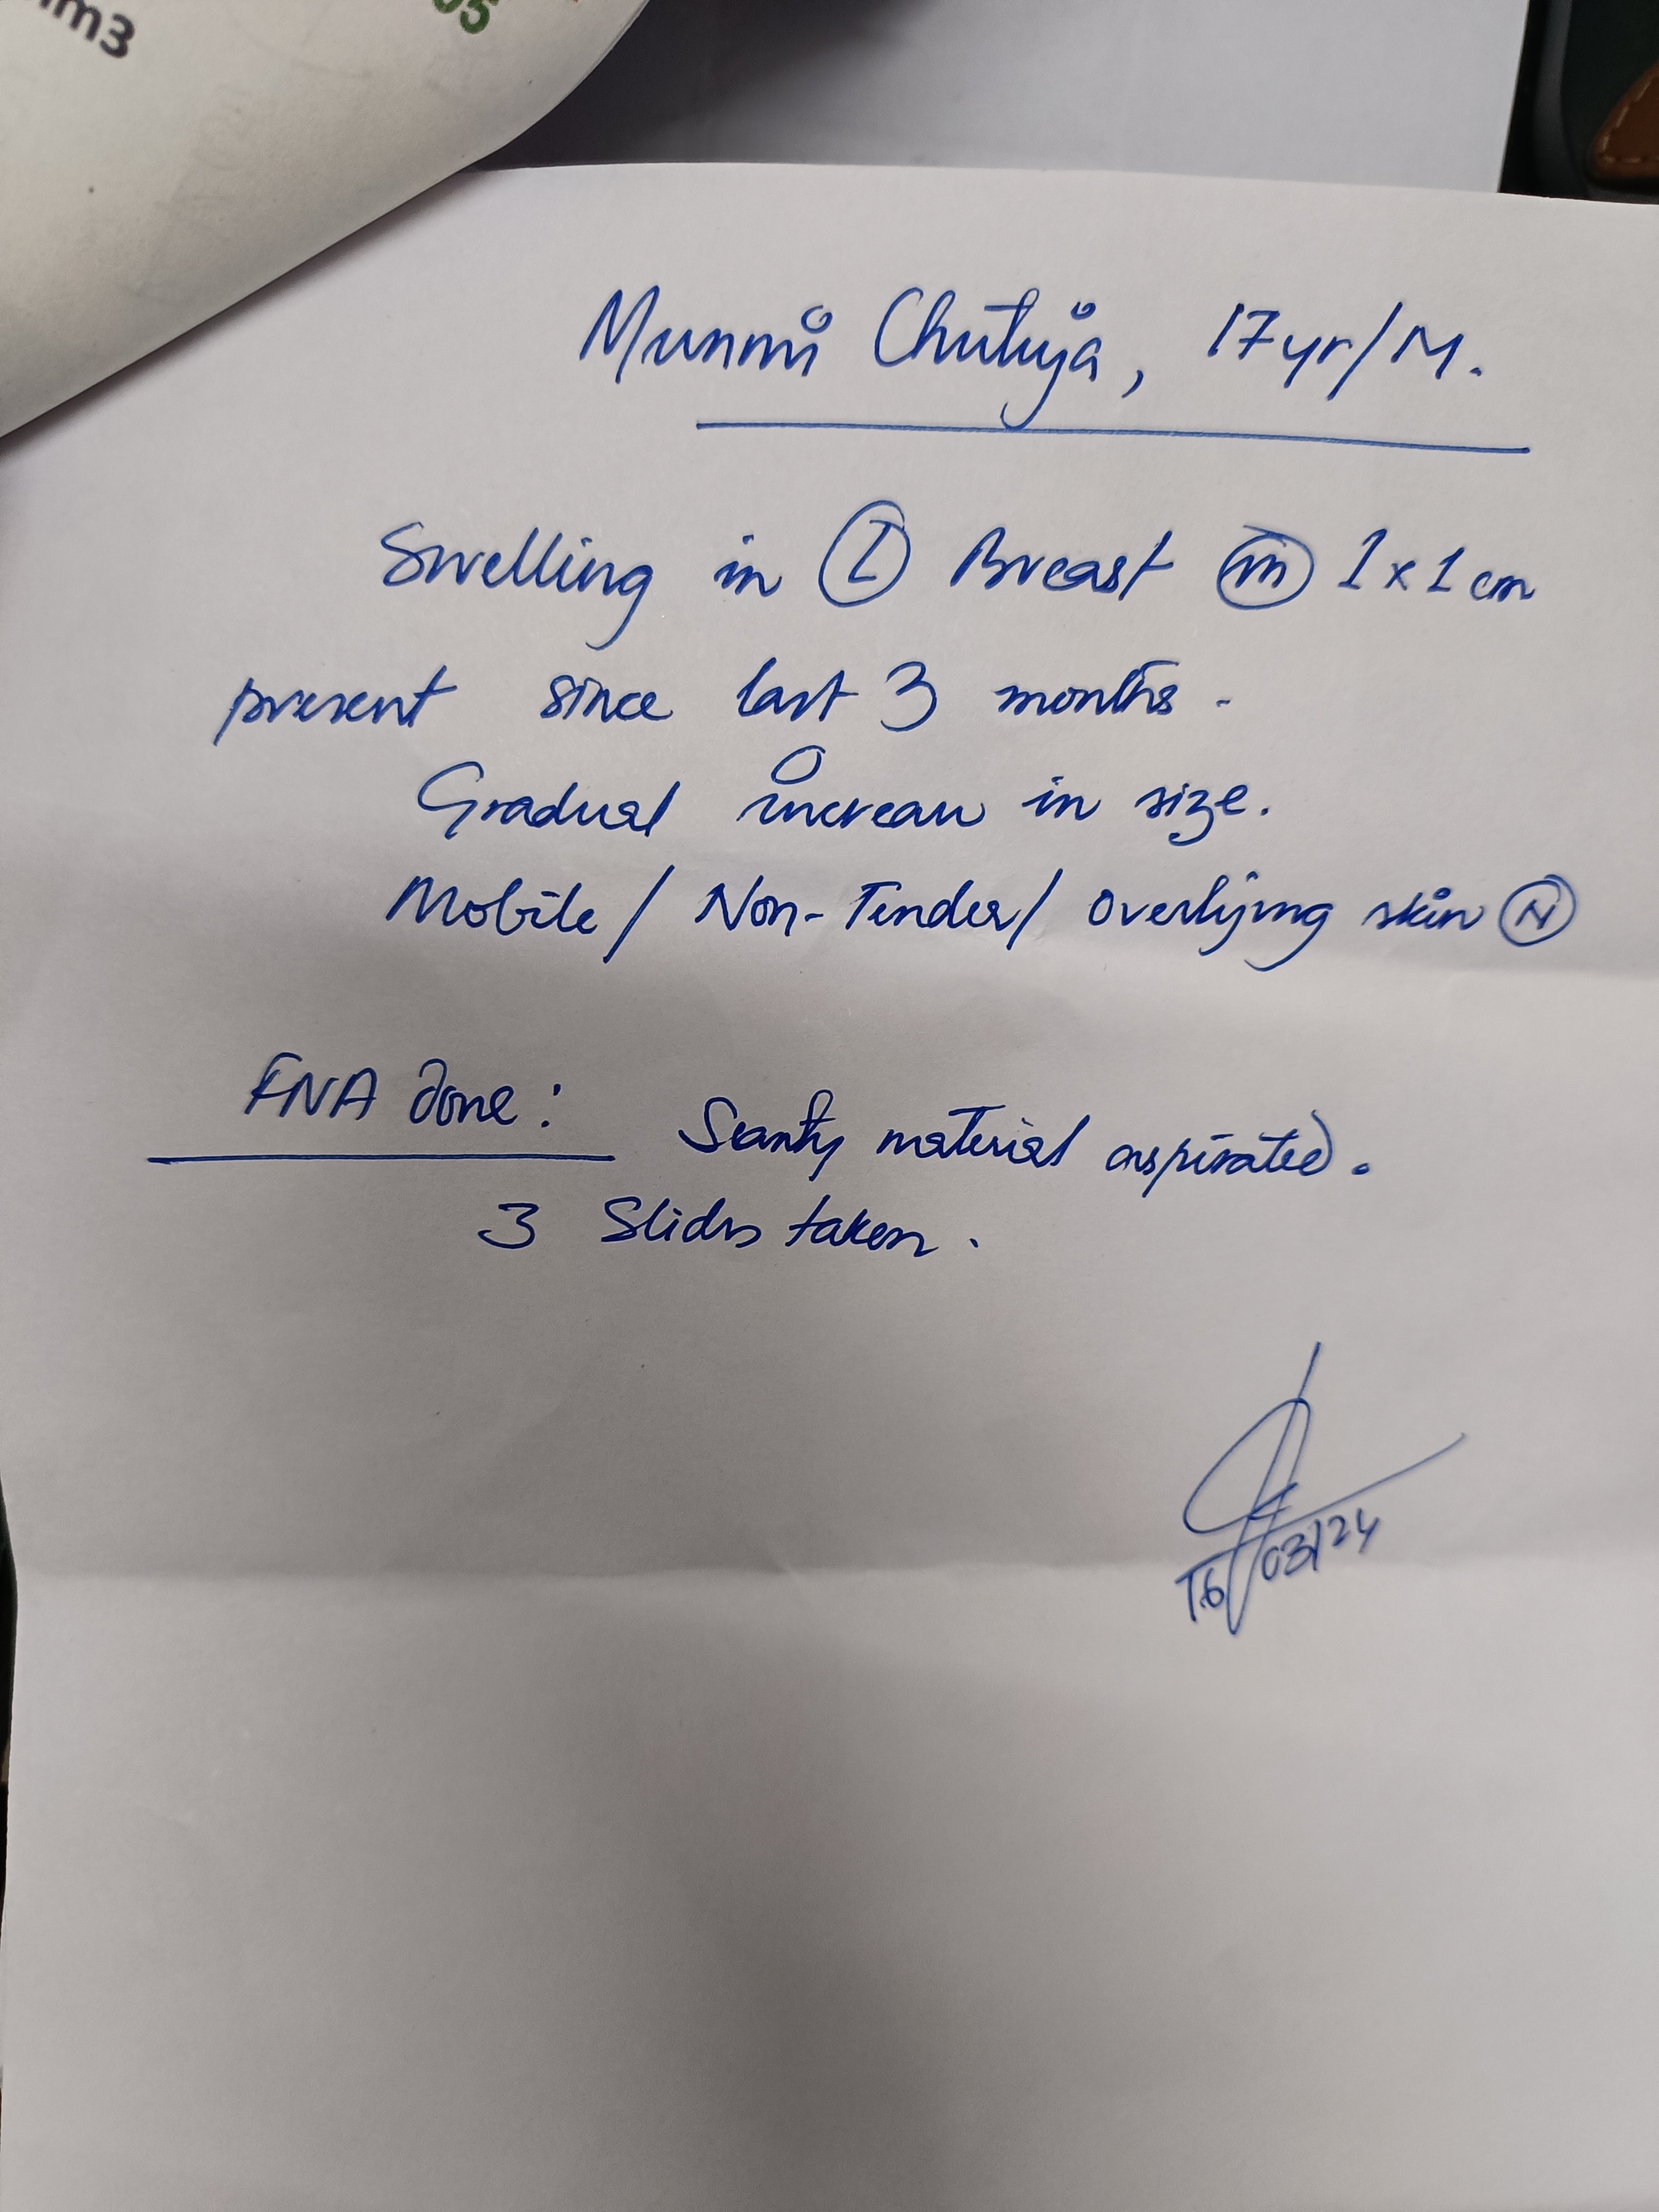 mm3
05
Munmi Chutiya, 17yr/M.
Swelling in Ⓛ Breast ⓜ 1 x 1 cm
present since last 3 months.
Gradual increase in size.
Mobile / Non-Tender / Overlying skin Ⓝ
FNA done: Scanty material aspirated.
3 Slides taken.
16/03/24